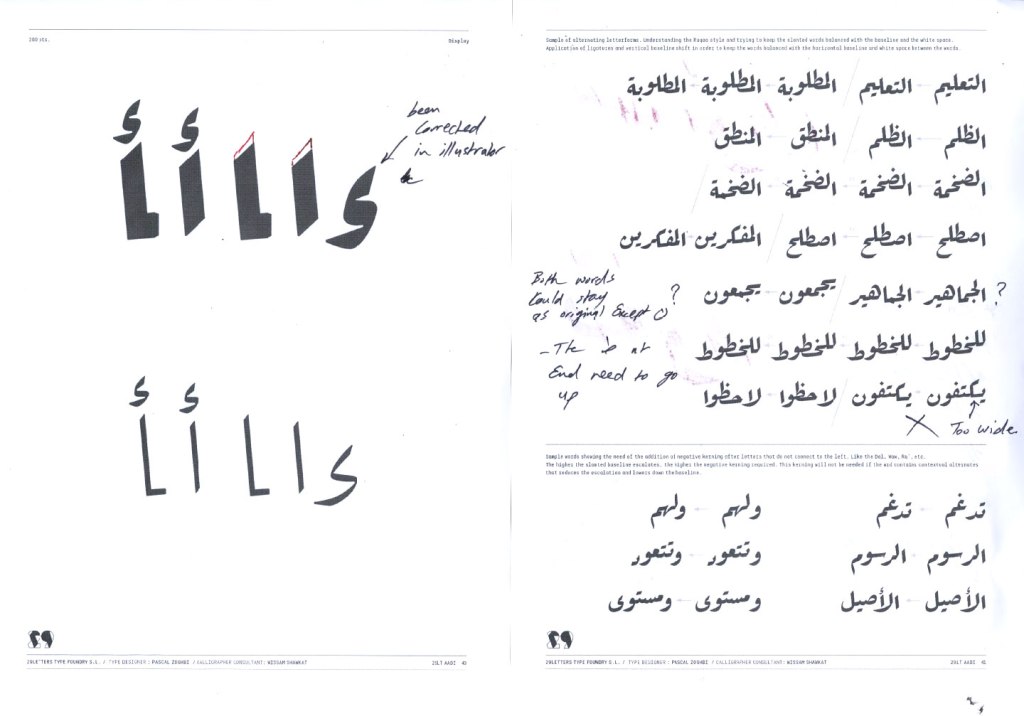 200 pts.
Display
أ أ ا ا ء
been
corrected
in illustrator
أ أ ا ا ء
29LETTERS TYPE FOUNDRY S.L. / TYPE DESIGNER : PASCAL ZOGHBI / CALLIGRAPHER CONSULTANT: WISSAM SHAWKAT
29LT AADI
Sample of alternating letterforms. Understanding the Ruqaa style and trying to keep the slanted words balanced with the baseline and the white space.
Application of ligatures and vertical baseline shift in order to keep the words balanced with the horizontal baseline and white space between the words.
التعليم التعليم المطلوبة المطلوبة المطلوبة
الظلم الظلم المنطق المنطق
الضخمة الضخمة الضخمة الضخمة
اصطلح اصطلح اصطلح المفكرين المفكرين
? الجماهير الجماهير يجمعون يجمعون ?
Both words
Could stay
as original Except
للخطوط للخطوط للخطوط للخطوط
- The is at
End need to go
up
يكتفون يكتفون لاحظوا لاحظوا
Too wide
Sample words showing the need of the addition of negative kerning after letters that do not connect to the left. Like the Dal, Waw, Ra', etc.
The higher the slanted baseline escalates, the higher the negative kerning required. This kerning will not be needed if the word contains contextual alternates
that reduces the escalation and lowers down the baseline.
تدغم تدغم ولهم ولهم
الرسوم الرسوم وتتعود وتتعود
الأصيل الأصيل ومستوى ومستوى
29LETTERS TYPE FOUNDRY S.L. / TYPE DESIGNER : PASCAL ZOGHBI / CALLIGRAPHER CONSULTANT: WISSAM SHAWKAT
29LT AADI